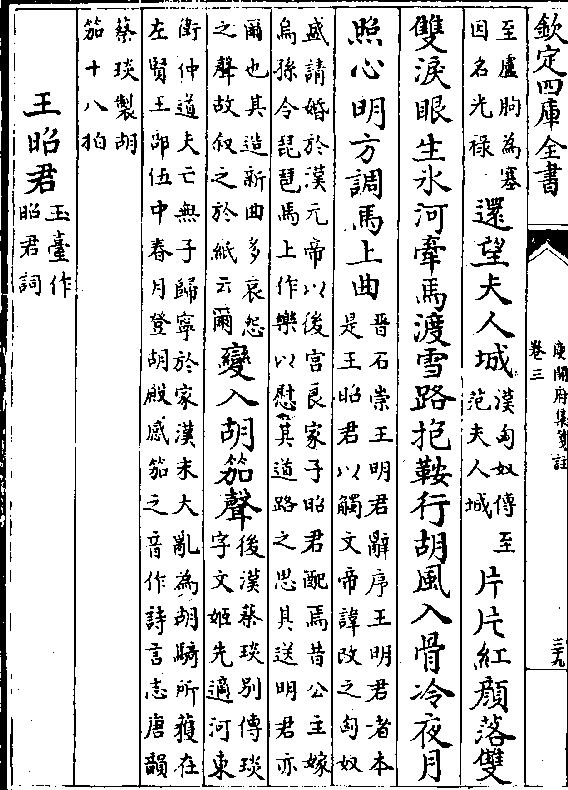 欽定四庫全書
庾開府集箋註
卷三
三九
至盧朐為塞
因名光祿
還望夫人城
漢匈奴傳至
范夫人城
片片紅顔落雙
雙淚眼生氷河牽馬渡雪路抱鞍行胡風入骨冷夜月
照心明方調馬上曲
晉石崇王明君辭序王明君者本
是王昭君以觸文帝諱改之匈奴
盛請婚於漢元帝以後宫良家子昭君配焉昔公主嫁
烏孫令琵琶馬上作樂以慰其道路之思其送明君亦
爾也其造新曲多哀怨
之聲故叙之於紙云爾
變入胡笳聲
後漢蔡琰别傳琰
字文姬先適河東
衛仲道夫亡無子歸寧於家漢末大亂為胡騎所獲在
左賢王部伍中春月登胡殿感笳之音作詩言志唐韻
蔡琰製胡
笳十八拍
王昭君
玉臺作
昭君詞